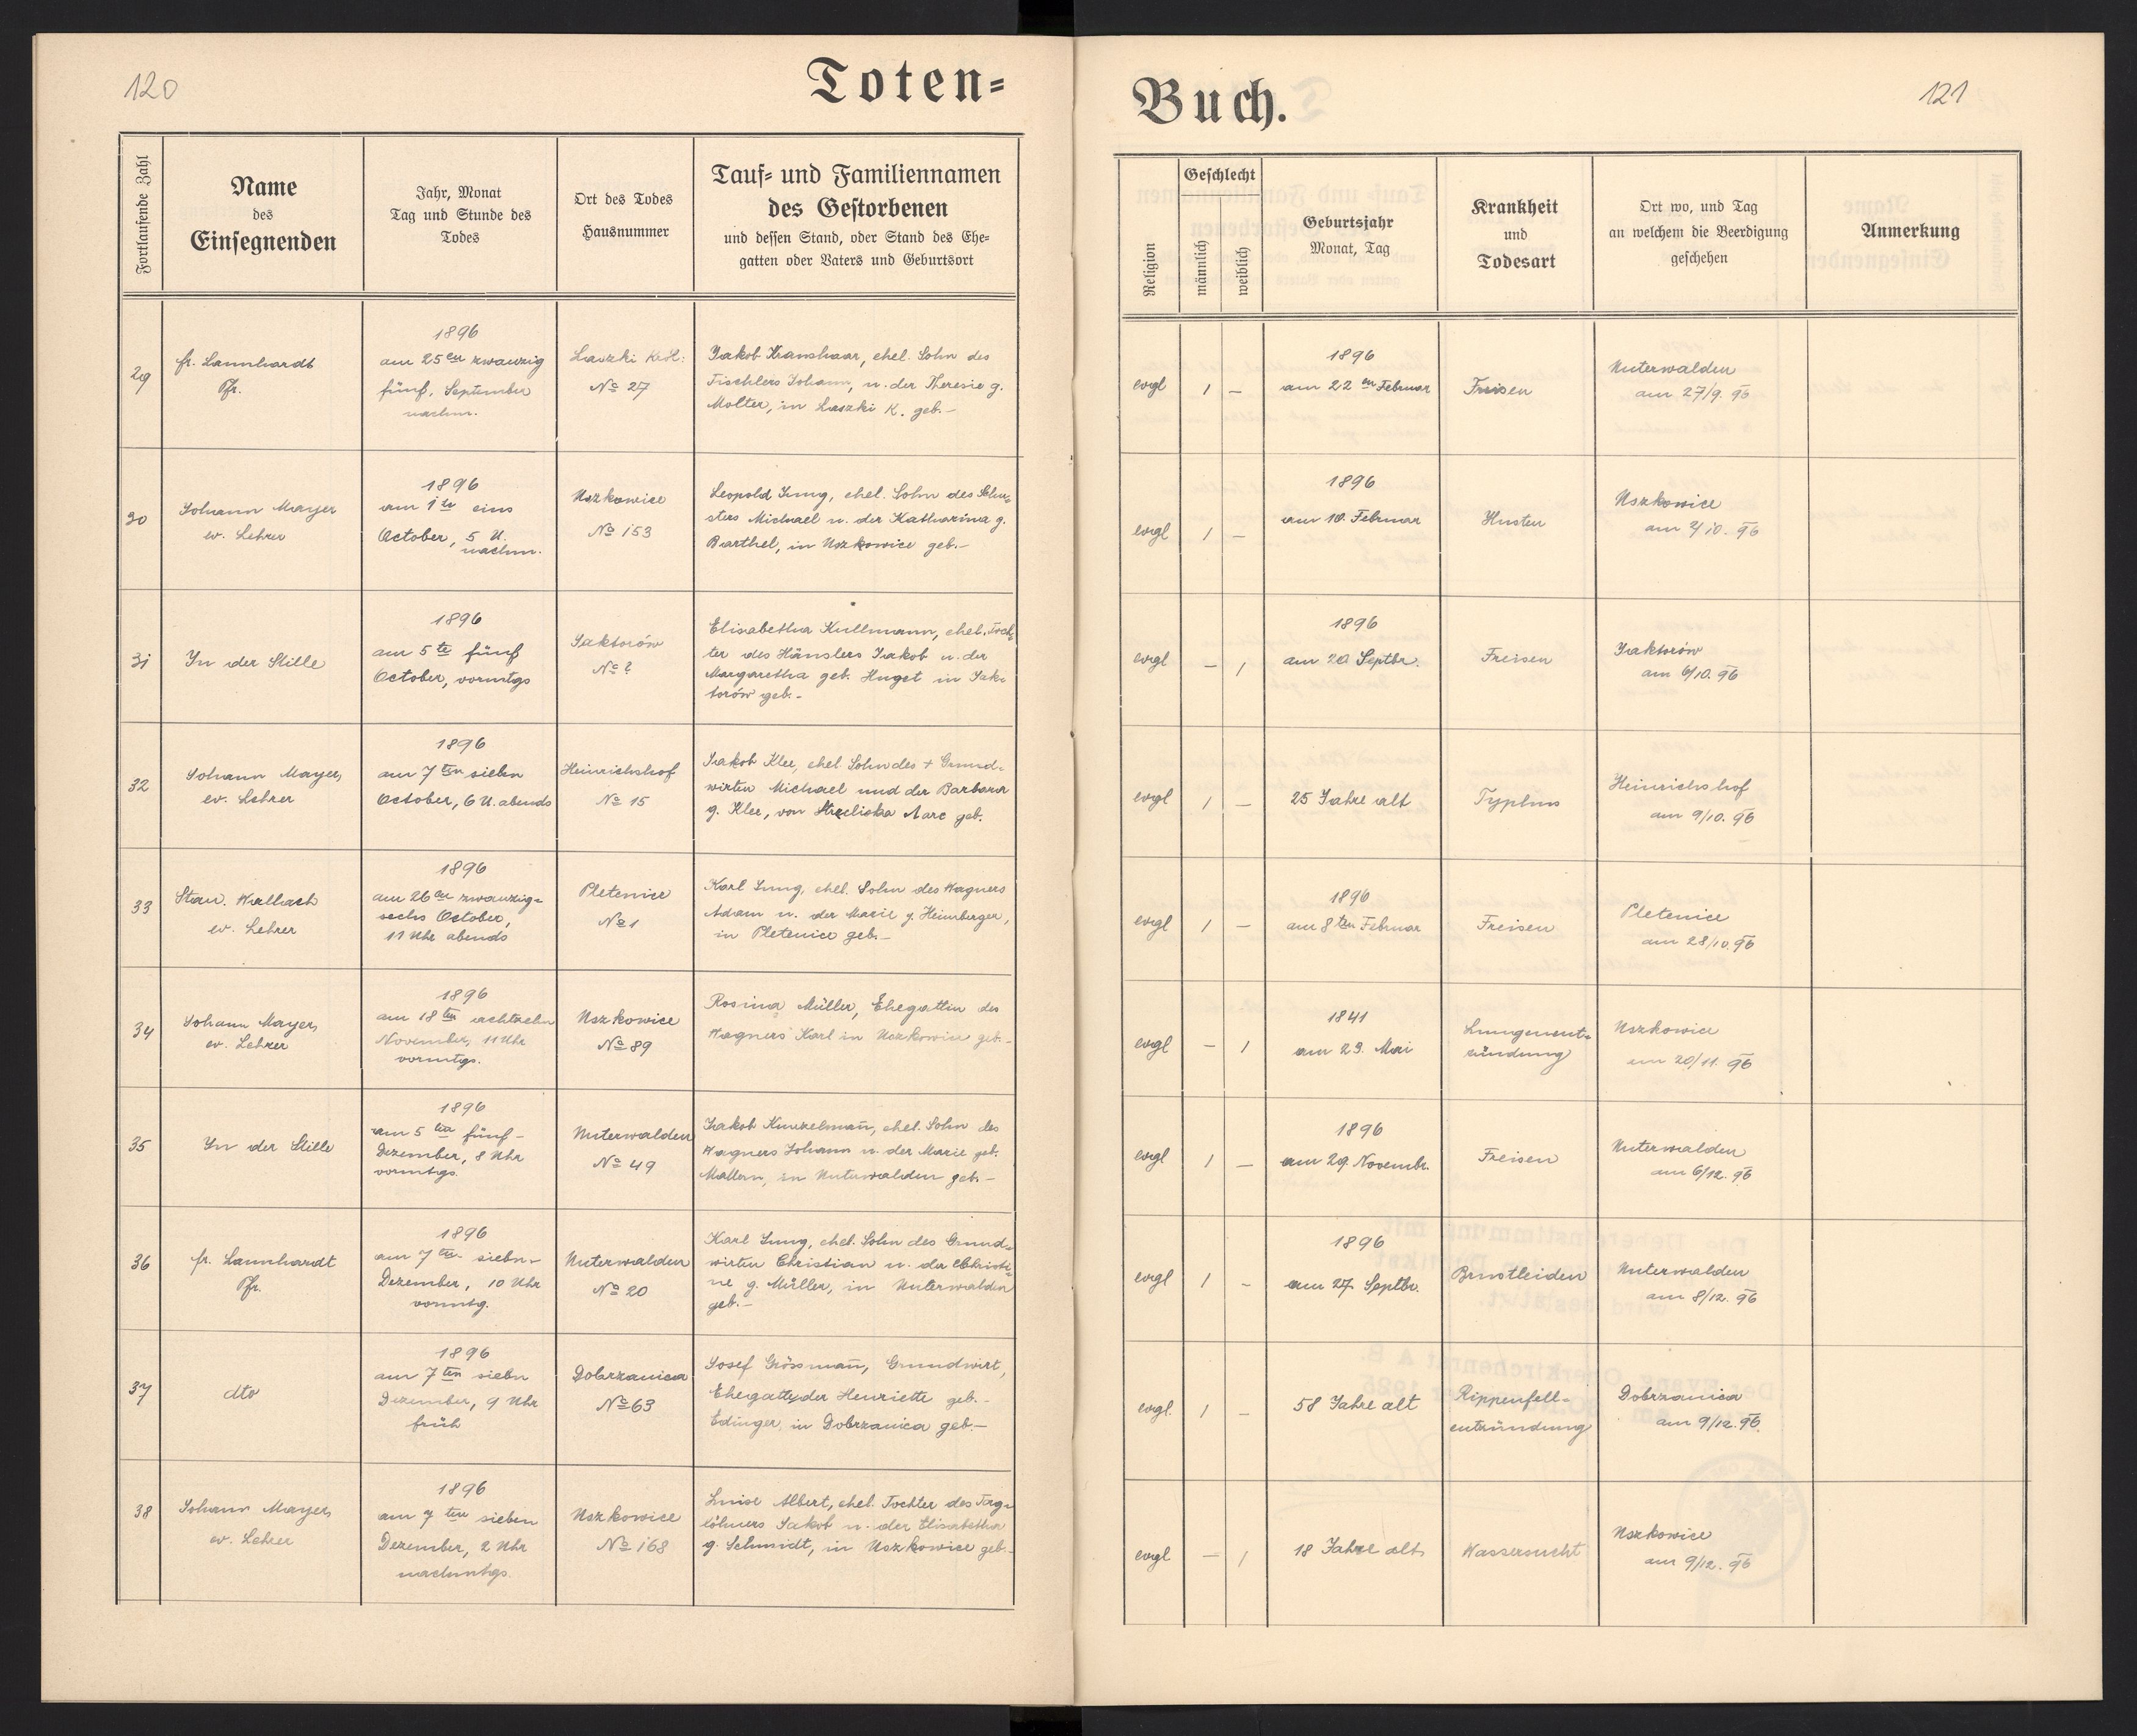 120
Toten=
Fortlaufende Zahl
Name
des
Einsegnenden
Jahr, Monat
Tag und Stunde des
Todes
Ort des Todes
Hausnummer
Tauf= und Familiennamen
des Gestorbenen
und dessen Stand, oder Stand des Ehe=
gatten oder Vaters und Geburtsort
29
fr. Lannhardt
Pfr.
1896
am 25en zwanzig
fünf, September
nachm.
Laszki Król:
No 27
Jakob Kranshaar, ehel. Sohn des
Tischlers Johann, u. der Theresie g.
Molter, in Laszki K. geb.-
30
Johann Mayer
ev. Lehrer
1896
am 1te eins
October, 5 U.
nachm.
Uszkowice
No 153
Leopold Jung, ehel. Sohn des Schu-
sters Michael u. der Katharina g.
Barthel, in Uszkowice geb.-
31
In der Stille
1896
am 5te fünf
October, vormtgs
Jaktorów
No ?
Elisabetha Kullmann, ehel. Toch-
ter des Häuslers Jakob u. der
Margaretha geb. Huget in Jak-
torów geb.-
32
Johann Mayer,
ev. Lehrer
1896
am 7ten sieben
October, 6 U. abends
Heinrichshof
No 15
Jakob Klee, ehel. Sohn des + Grund-
wirten Michael und der Barbara
g. Klee, von geb.
33
Stan. Wallach
ev. Lehrer
1896
am 26en zwanzig-
sechs October,
11 Uhr abends
Pletenice
No 1
Karl Jung, ehel. Sohn des Wagners
Adam u. der Marie g. Heimberger,
in Pletenice geb.-
34
Johann Mayer,
ev. Lehrer
1896
am 18ten achtzehn
November, 11 Uhr
vormtgs.
Uszkowice
No 89
Rosina Müller, Ehegattin des
Wagners Karl in Uszkowice geb.-
35
In der Stille
1896
am 5ten fünf-
Dezember, 8 Uhr
vormtgs.
Unterwalden
No 49
Jakob Kunzelmañ, ehel. Sohn des
Wagners Johann u. der Marie geb.
Mallern, in Unterwalden geb.-
36
fr. Lannhardt
Pfr.
1896
am 7ten sieben-
Dezember, 10 Uhr
vormtg.
Unterwalden
No 20
Karl Jung, ehel. Sohn des Grund-
wirten Christian u. der Christi-
ne g. Müller, in Unterwalden
geb.-
37
dto
1896
am 7ten sieben
Dezember, 9 Uhr
früh
Dobrzanica
No 63
Josef Grössmañ, Grundwirt,
Ehegatte der Henriette geb.-
Edinger, in Dobrzanica geb.-
38
Johann Mayer,
ev. Lehrer
1896
am 7ten sieben
Dezember, 2 Uhr
nachmtgs.
Uszkowice
No 168
Luise Albert, ehel. Tochter des Tag-
löhners Jakob u. der Elisabetha
g. Schmidt, in Uszkowice geb.-
Buch.
121
Religion
Geschlecht
männlich
weiblich
Geburtsjahr
Monat, Tag
Krankheit
und
Todesart
Ort wo, und Tag
an welchem die Beerdigung
geschehen
Anmerkung
evgl
1
-
1896
am 22en Februar
Freisen
Unterwalden
am 27/9. 96
evgl
1
-
1896
am 10. Februar
Husten
Uszkowice
am 2/10. 96
evgl
-
1
1896
am 20 Septbr.
Freisen
Jaktorów
am 6/10. 96
evgl
1
-
25 Jahre alt
Typhus
Heinrichshof
am 9/10. 96
evgl
1
-
1896
am 8ten Februar
Freisen
Pletenice
am 28/10. 96
evgl
-
1
1841
am 23. Mai
Lungenent-
zündung
Uszkowice
am 20/11. 96
evgl
1
-
1896
am 29. Novembr.
Freisen
Unterwalden
am 6/12. 96
evgl
1
-
1896
am 27. Septbr.
Brustleiden
Unterwalden
am 8/12. 96
evgl.
1
-
58 Jahre alt
Rippenfell-
entzündung
Dobrzanica
am 9/12. 96.
evgl
-
1
18 Jahre alt
Wassersucht
Uszkowice
am 9/12. 96